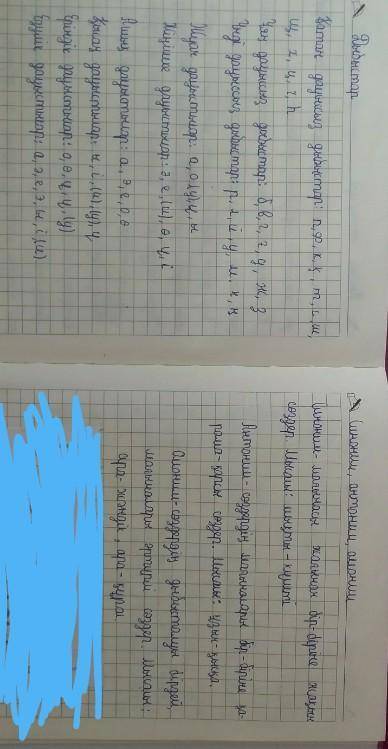 Дыбыстар
Қатаң дауыссыз дыбыстар: п, ф, к, қ, т, с, ш,
щ, х, ц, ч, һ
Ұяң дауыссыз дыбыстар: б, в, г, ғ, д, ж, з
Үнді дауыссыз дыбыстар: р, л, й, у, м, н, ң
Жуан дауыстылар: а, о, ұ, (у), ы
Жіңішке дауыстылар: ә, е, (и), ө, ү, і
Ашық дауыстылар: а, ә, е, о, ө
Қысаң дауыстылар: ы, і, (и), (у), ұ, ү
Еріндік дауыстылар: о, ө, ұ, ү, (у)
Езулік дауыстылар: а, ә, е, э, ы, і, (и)
Синоним, антоним, омоним
Синоним- мағынасы жағынан бір-біріне жақын
сөздер. Мысалы: мықты - күшті
Антоним- сөздердің мағыналары бір-біріне қа-
рама-қарсы сөздер. Мысалы: ұзын-қысқа.
Омоним- сөздердің дыбысталуы бірдей,
мағыналары әртүрлі сөздер. Мысалы:
ара- жәндік, ара-құрал